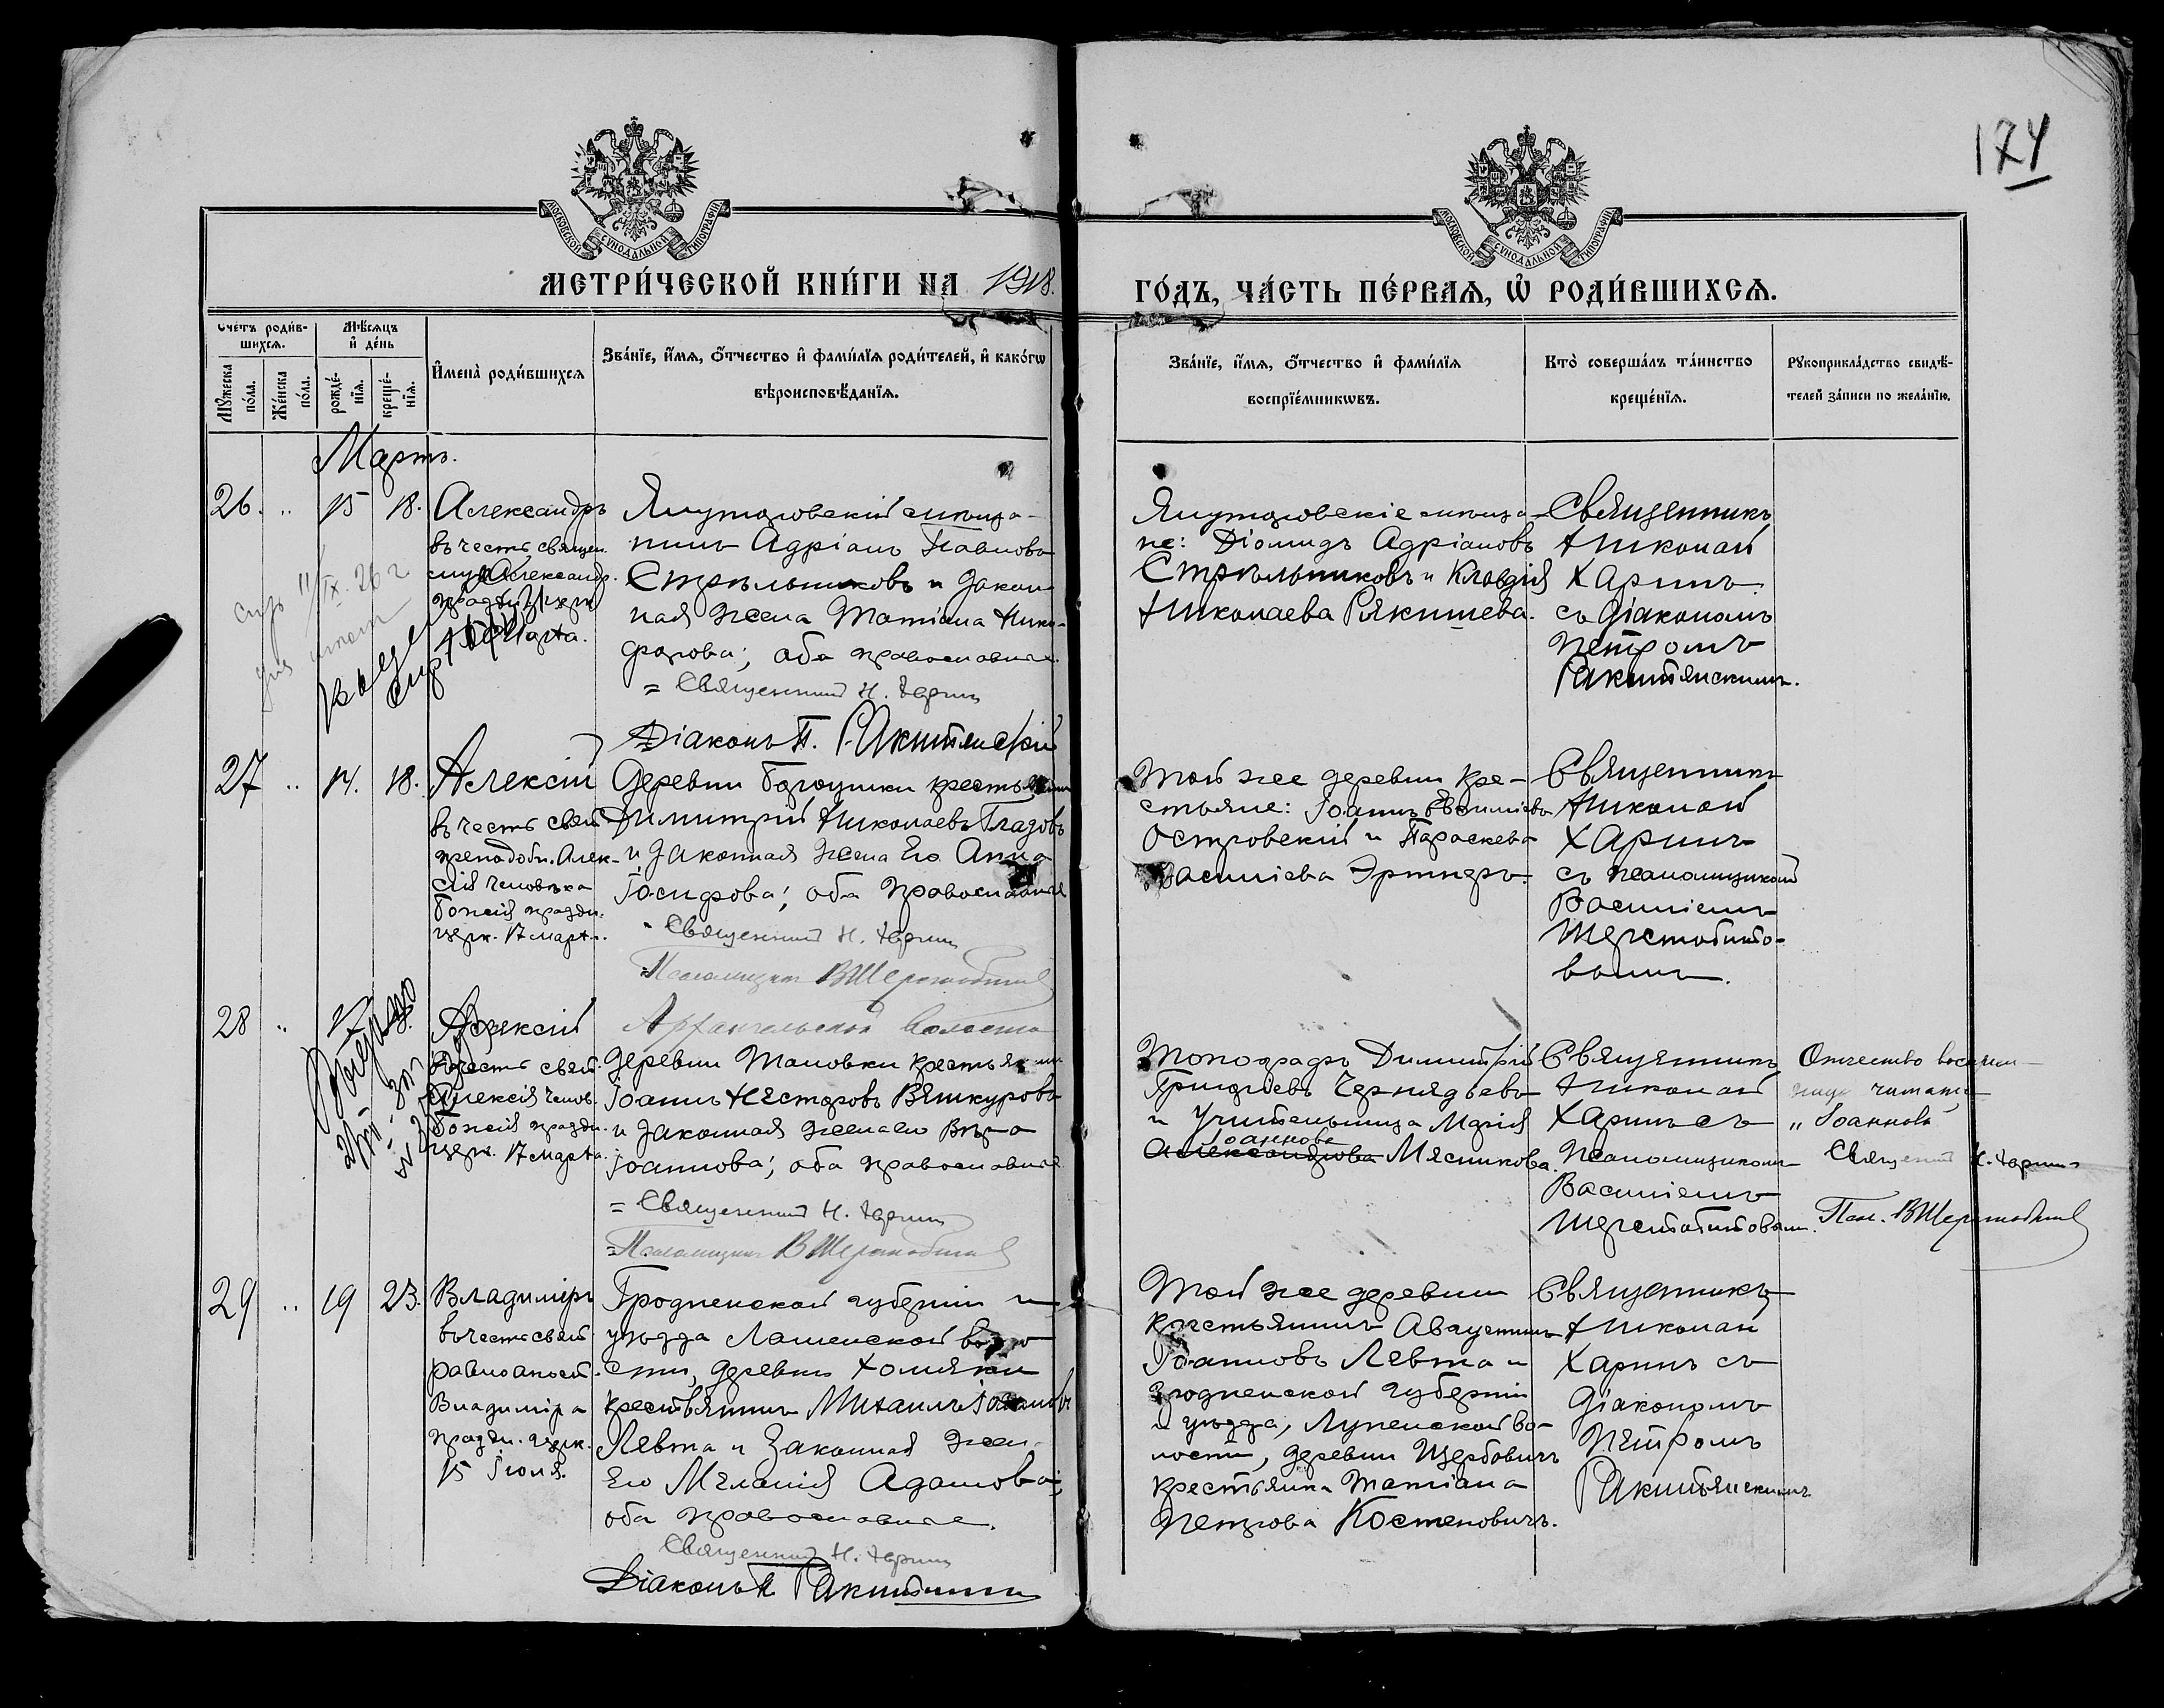 174
МОСКОВСКОЙ СѴНОДАЛЬНОЙ ТИПОГРАФІИ
МОСКОВСКОЙ СѴНОДАЛЬНОЙ ТИПОГРАФІИ
МЕТРИ́ЧЕСКОЙ КНИ́ГИ НА 1918.
ГО́ДЪ, ЧА́СТЬ ПЕ́РВАЯ, Ѡ҆ РОДИ́ВШИХСЯ.
Сче́тъ роди́в-
шихся.
Мѣ́сяцъ
и҆ де́нь
Мꙋ́жеска по́ла.
Же́нска по́ла.
рожде́-
нїя.
креще́-
нїя.
И҆мена̀ роди́вшихся
Зва́нїе, и҆́мя, ѻ҆́тчество и҆ фами́лїя роди́телей, и҆ како́гѡ
вѣроисповѣ́данїя.
Зва́нїе, и҆́мя, ѻ҆́тчество и҆ фами́лїя
воспрїе́мникѡвъ.
Кто̀ соверша́лъ та́инство
креще́нїя.
Рꙋкоприкла́дство свидѣ́-
телей за́писи по жела́нїю.
Мартъ.
26. " 15 18.
Александръ
въ честь священ.
Александр.
Марта.
Ялуторовскій мѣща-
нинъ Адріанъ Павловъ
Стрѣльниковъ и закон-
ная жена Татіана Ники-
форова; оба православные.
= Священникъ Н. Харинъ
Діаконъ П. Ракитянскій
Ялуторовскіе мѣща-
не: Діомидъ Адріановъ
Стрѣльниковъ и Клавдія
Николаева Рякишева.
Священникъ
Николай
Харинъ
съ Діакономъ
Петромъ
Ракитянскимъ.
27 " 14. 18.
Алексій
въ честь свят.
преподобн. Алек-
сія человѣка
Божія праздн.
церк. 17 марта.
Деревни крестьянинъ
Димитрій Николаевъ Гладовъ
и законная жена его Анна
Іосифова; оба православные
" Священникъ Н. Харинъ
= Псаломщикъ В Шерстобитовъ
Той же деревни кре-
стьяне: Іоаннъ Евфиміевъ
Островскій и Параскева
Васильева
Священникъ
Николай
Харинъ
съ псаломщикомъ
Василіемъ
Шерстобито-
вымъ.
28 " 17
Алексій
въ честь свят.
Алексія челов.
Божія праздн.
церк. 17 марта.
Архангельской волости
деревни Тановки крестьянинъ
Іоаннъ Несторовъ Вяткуровъ
и законная жена его Вѣра
Іоаннова; оба православные
= Священникъ Н. Харинъ
= Псаломщикъ В Шерстобитовъ
Топографъ Димитрій
Григорьевъ Чернядьевъ
и учительница Марія
Іоаннова
Александрова Мясникова.
Священникъ
Николай
Харинъ съ
Псаломщикомъ
Василіемъ
Шерстобитовымъ.
Отчество воспріем-
ницы читать
"Іоаннова"
Священникъ Н. Харинъ
Пса. В Шерстобитовъ
29 " 19 23.
Владиміръ
въ честь свят.
равноапост.
Владиміра
праздн. церк.
15 Іюля.
Гродненской губерніи и
уѣзда Лашенской воло-
сти, деревни Хомяки
крестьянинъ Михаилъ Іоанновъ
Левта и законная жен.
его Меланія Адамова;
оба православные.
Священникъ Н. Харинъ
Діаконъ П. Ракитянскій
Той же деревни
крестьянинъ Августинъ
Іоанновъ Левта и
Гродненской губерніи
и уѣзда, Луненской во-
лости, деревни Щербовичъ
крестьянка Татіана
Петрова Костеновичъ.
Священникъ
Николай
Харинъ съ
Діакономъ
Петромъ
Ракитянскимъ.